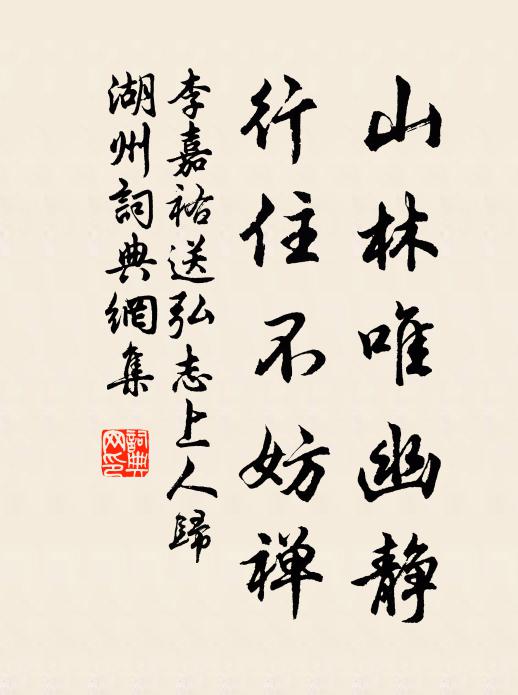 山林唯幽静
行住不妨禅
李嘉祐送弘志上人歸
湖州詞典網集
詞典
网印